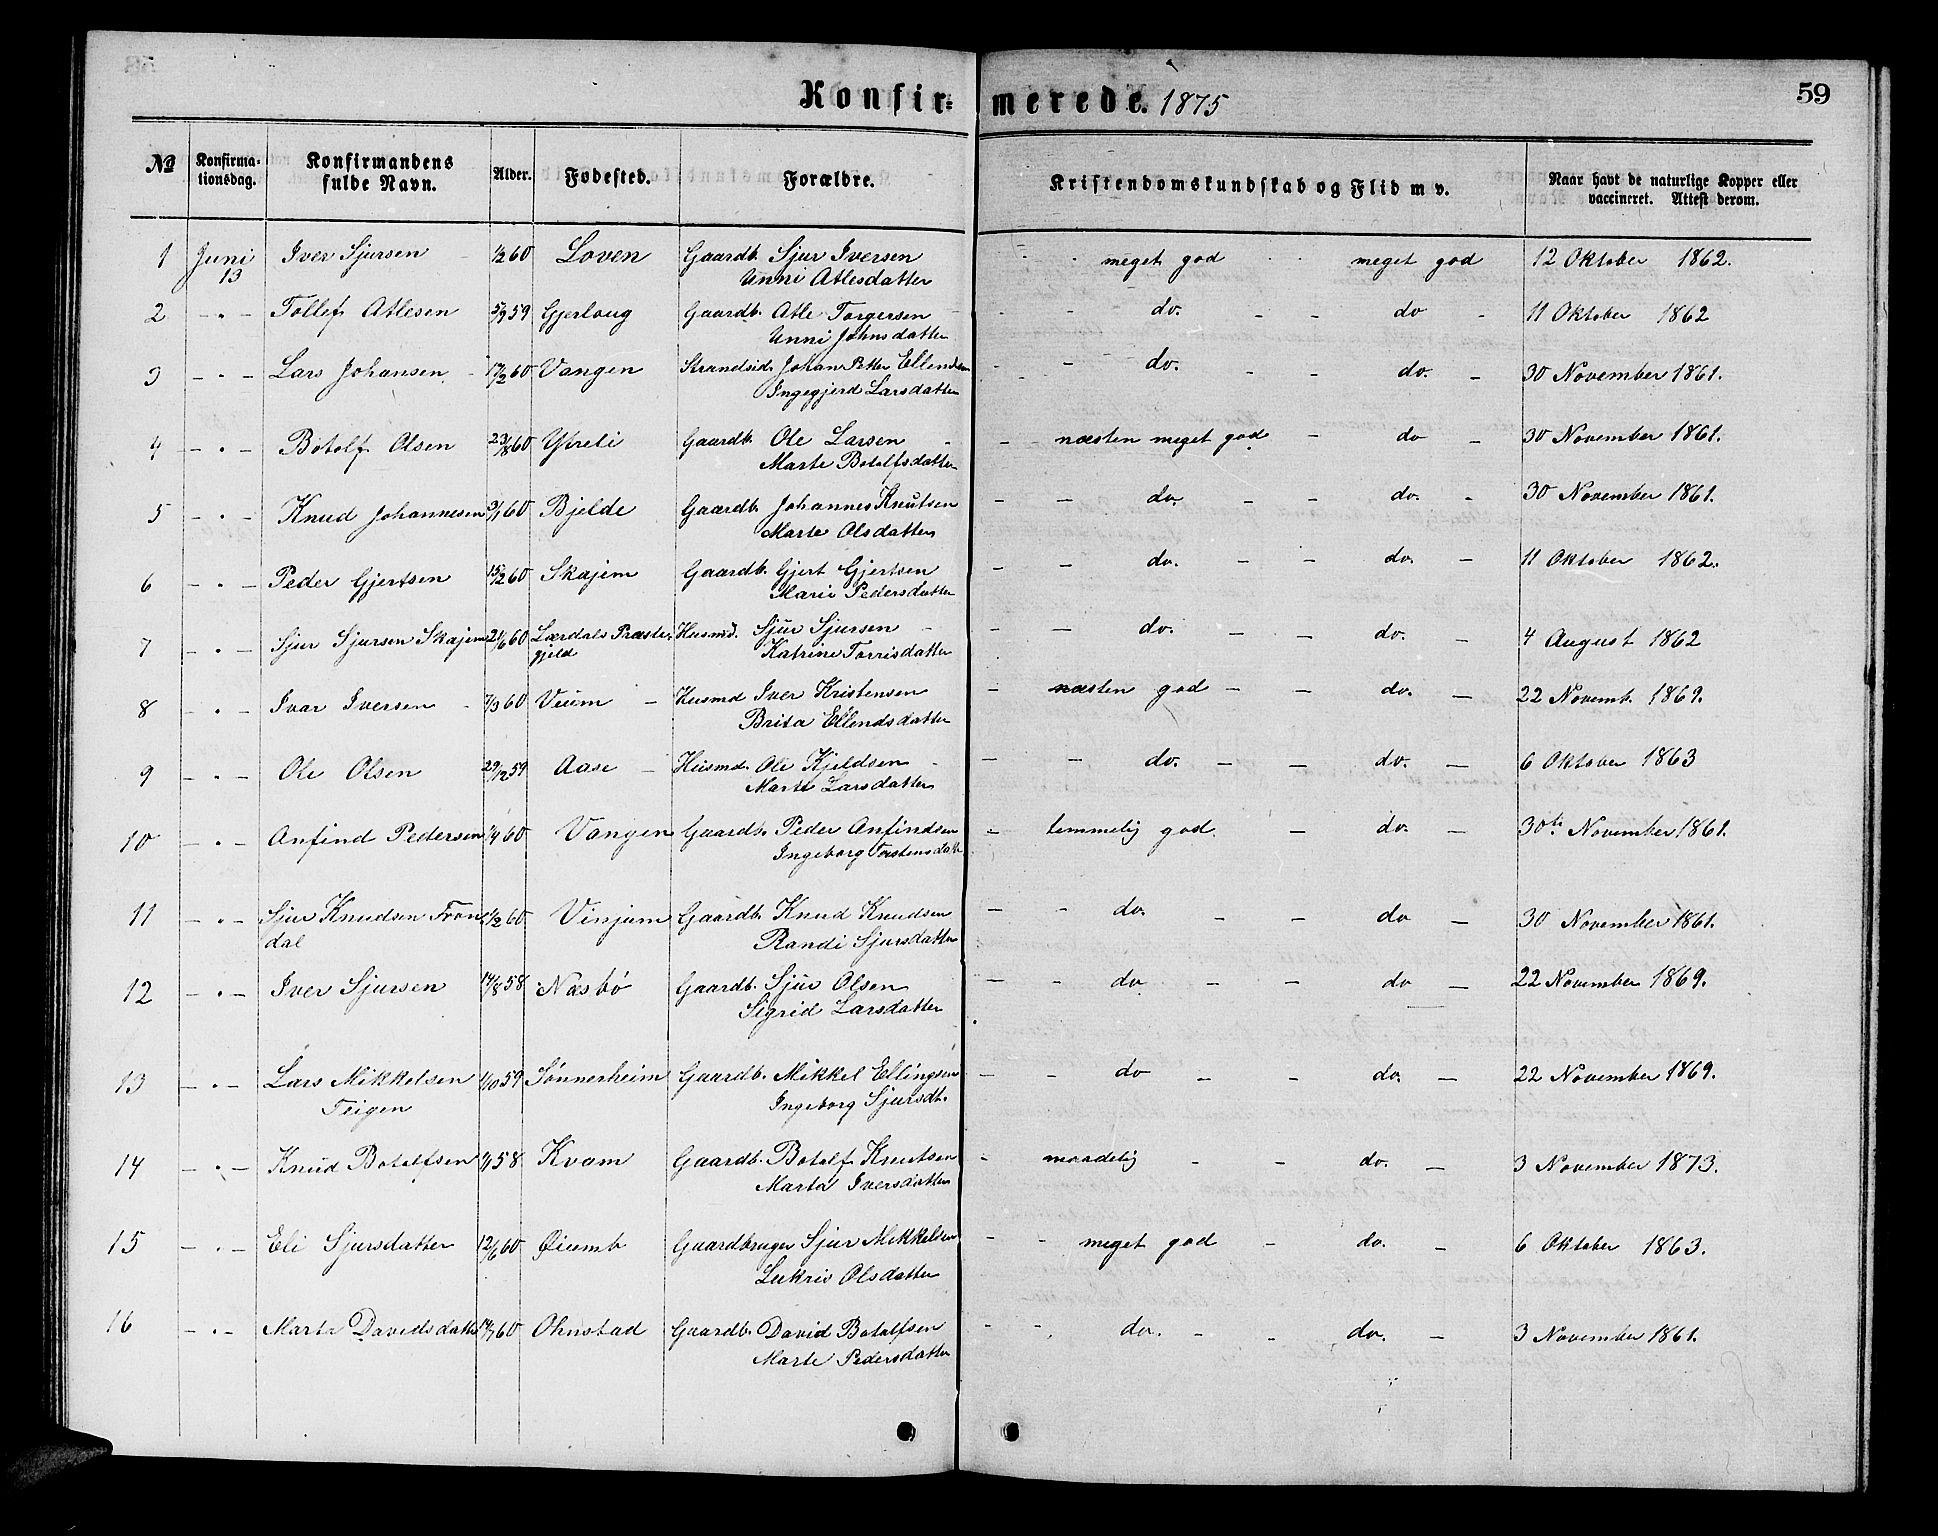 Konfirmerede. 1875 59
№ Konfirmationsdag. Konfirmandens fulde Navn. Alder. Fødested. Forældre. Kristendomskundskab og Flid m v. Naar havt de naturlige Kopper eller vaccineret. Attest derom.
1 Juni 13 Iver Sjursen 1/2 60 Loven Gaardb. Sjur Iversen meget god meget god 12 Oktober 1862.
Unni Atlesdatter
2 - " - Tollef Atlesen 5/9 59 Gjerloug Gaardb. Atle Torgersen - - do. - - do - 11 Oktober 1862
Unni Johnsdatter
3 - " - Lars Johansen 17/2 60 Vangen Strandsid. Johan Petter Ellendsen - - do. - - do. - 30 November 1861.
Ingegjerd Larsdatter
4 - " - Botolf Olsen 23/8 60 Ytreli Gaardb. Ole Larsen - - næsten meget god - do - 30 November 1861.
Marte Botolfsdatter
5 - " - Knud Johannesen 3/1 60 Bjelde Gaardb. Johannes Knutsen - - do. - - do. - 30 November 1861.
Marte Olsdatter
6 - " - Peder Gjertsen 15/2 60 Skajem Gaardb. Gjert Gjertsen - - do. - - do. - 11 Oktober 1862.
Marie Pedersdatter
7 - " - Sjur Sjursen Skajem 21/6 60 Lærdals Præste- Husmd. Sjur Sjursen - - do. - - do. - 4 August 1862
gjeld Katrine Torrisdatter
8 - " - Ivar Iversen - 7/3 60 Veium - Husmd Iver Kristensen - næsten god - - do. - 22 Novemb. 1869.
Brita Ellendsdatter
9 - " - Ole Olsen 29/12 59 Aase - Husmd. Ole Kjeldsen - - - do. - - do. - 6 Oktober 1863
Marte Larsdatter
10 - " - Anfind Pedersen 1/4 60 Vangen Gaardb. Peder Anfindsen - temmelig god. - do. - 30te November 1861.
Ingeborg Torstensdatt
11 - " - Sjur Knudsen Fron 1/2 60 Vinjum Gaardb. Knud Knudsen - - do. - - do - 30 November 1861.
dal Randi Sjursdatter
12 - " - Iver Sjursen 14/8 58 Næsbø Gaardb. Sjur Olsen - - do - - do - 22 November 1869.
Sigrid Larsdatter
13 - " - Lars Mikkelsen 1/10 59 Sønnerheim Gaardb. Mikkel Ellingsen - - do - - do. - 22 November 1869.
Teigen Ingeborg Sjursdt.
14 - " - Knud Botolfsen 1/1 58 Kvam Gaardb. Botolf Knutsen - maadelig - - do. - 3 November 1873.
Marta Iversdatter
15 - " - Eli Sjursdatter 12/6 60 Øiumb Gaardbruger Sjur Mikkelsen - - meget god - do. - 6 Oktober 1863.
Lukris Olsdatter
16 - " - Marte Davidsdatter 14/7 60 Ohnstad Gaardb. David Botolfsen - - do. - - do. - 3 November 1861.
Marte Pedersdatter